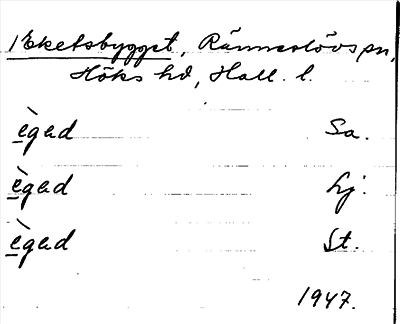 1 Eketsbygget, Ränneslövs sn,
Höks hd, Hall. l.
ègad Sa.
ègad Lj.
ègad St.
1947.